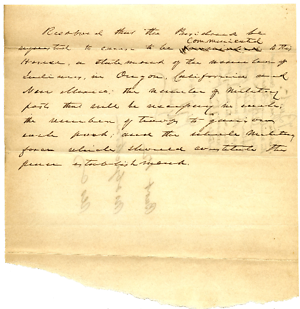 Resolved that the President be
requested to cause to be Communicated to this
House, a statement of the number of
Indians, in Oregon, California and
New Mexico; the number of Military
posts that will be necessary in each;
the number of troops to garrison
each post; and the whole Military
force which should constitute the
peace establishment.